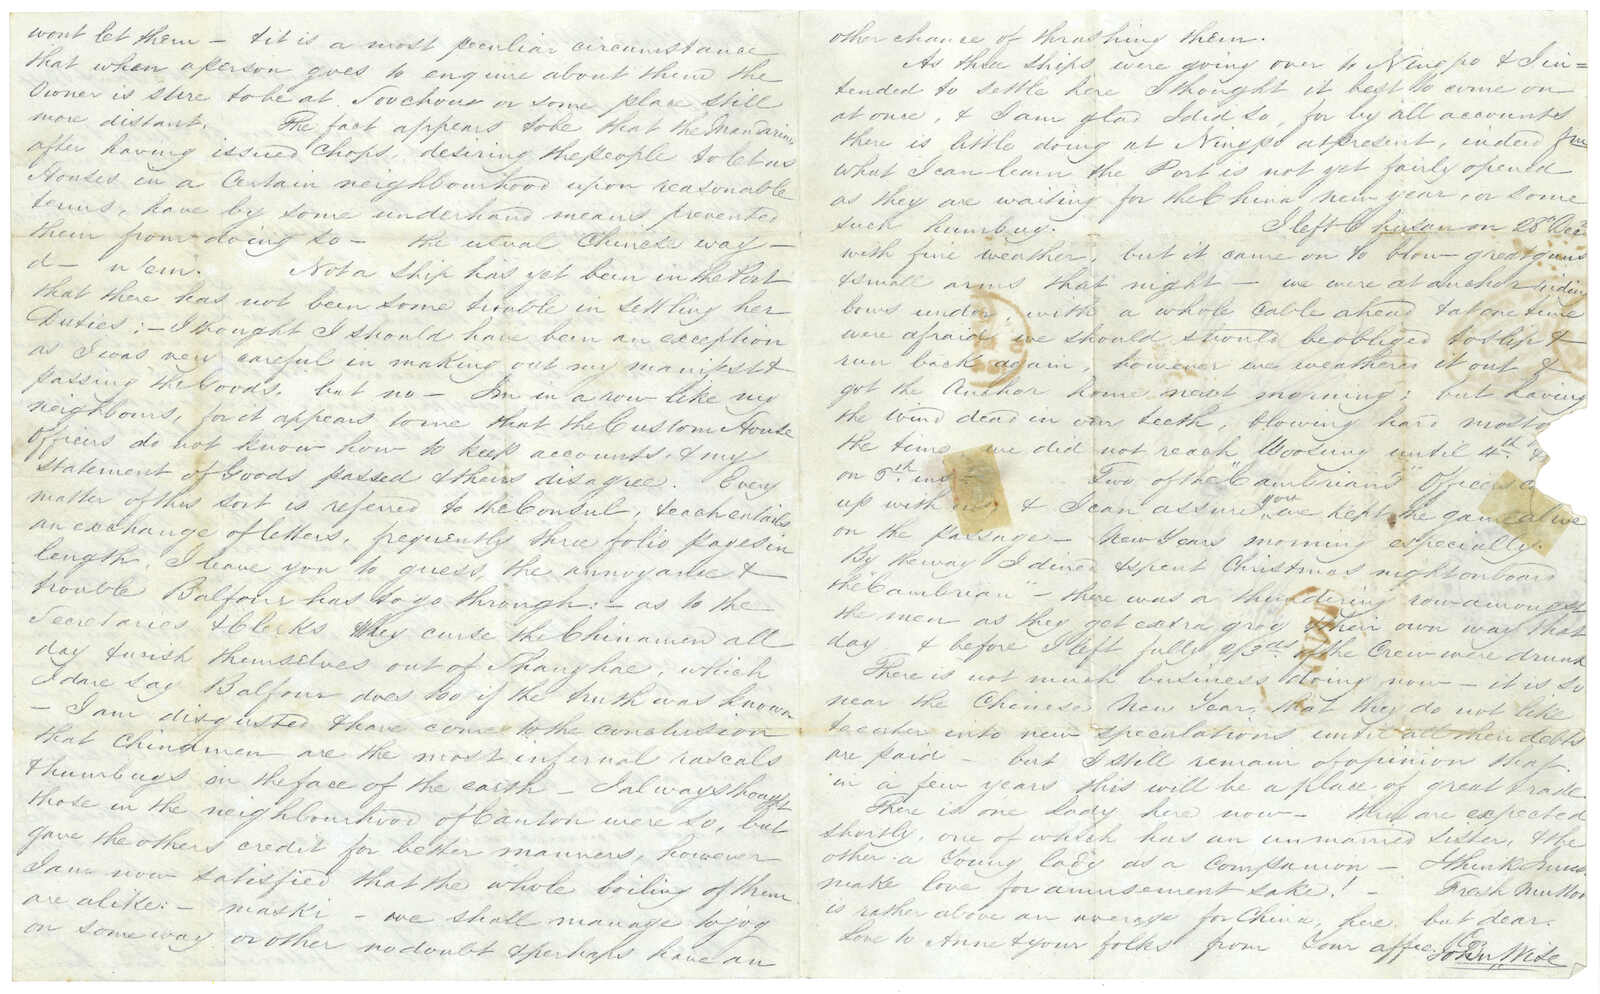 wont let them – & it is a most peculiar circumstance
that when a person goes to enquire about them the
Owner is sure to be at Soochow or some place still
more distant. The fact appears to be that the Mandarins
after having issued Chops, desiring the people to let us
Houses in a Certain neighbourhood upon reasonable
terms, have by some underhand means prevented
them from doing so – the usual Chinese way –
d– n'em. Not a ship has yet been in the Port
that there has not been some trouble in settling her
Duties: – I thought I should have been an exception
as I was very careful in making out my manifest &
passing the Goods, but no – I'm in a row like my
neighbours, for it appears to me that the Custom House
Officers do not know how to keep accounts, & my
statement of Goods passed & theirs disagree. Every
matter of this sort is referred to the Consul, & each entails
an exchange of letters, frequently three folio pages in
length. I leave you to guess, the annoyance &
trouble Balfour has to go through: – as to the
Secretaries & Clerks they curse the Chinamen all
day & wish themselves out of Shanghae, which
I dare say Balfour does too if the truth was known
– I am disgusted & have come to the conclusion
that Chinamen are the most infernal rascals
& humbugs on the face of the earth – I always thought
those in the neighbourhood of Canton were so, but
gave the others credit for better manners, however
I am now satisfied that the whole boiling of them
are alike: – maski – we shall manage to jog
on some way or other no doubt & perhaps have an
other chance of thrashing them.
As these ships were going over to Ningpo & I in=
tended to settle here I thought it best to come on
at once, & I am glad I did so, for by all accounts
there is little doing at Ningpo at present, indeed from
what I can learn the Port is not yet fairly opened
as they are waiting for the China new year, or some
such humbug. I left Chusan on 28th Decr
with fine weather, but it came on to blow great guns
& small arms that night – we were at anchor riding
bows under, with a whole cable ahead & at one time
were afraid we should should be obliged to slip &
run back again, however we weathered it out &
got the Anchor home next morning; but having
the wind dead in our teeth, blowing hard most o
the time we did not reach Woosung until 4th &
on 5th inst Two of the "Cambrians" Officers c
up with me & I can assure you we kept the game alive
on the passage – New Years morning especially.
By the way I dined & spent Christmas night on board
the "Cambrian" – there was a thundering row amongst
the men as they get extra grog & their own way that
day & before I left fully 2/3ds of the Crew were drunk
There is not much business doing now – it is so
near the Chinese New Year, that they do not like
to enter into new speculations until all their debts
are paid – but I still remain of opinion that
in a few years this will be a place of great trade
There is one lady here now – three are expected
shortly, one of which has an unmarried sister, & the
other a Young lady as a companion – I think I must
make love for amusement sake! – Fresh Mutton
is rather above an average for China, here but dear.
Love to Anne & your folks from Your affec.
John Wise